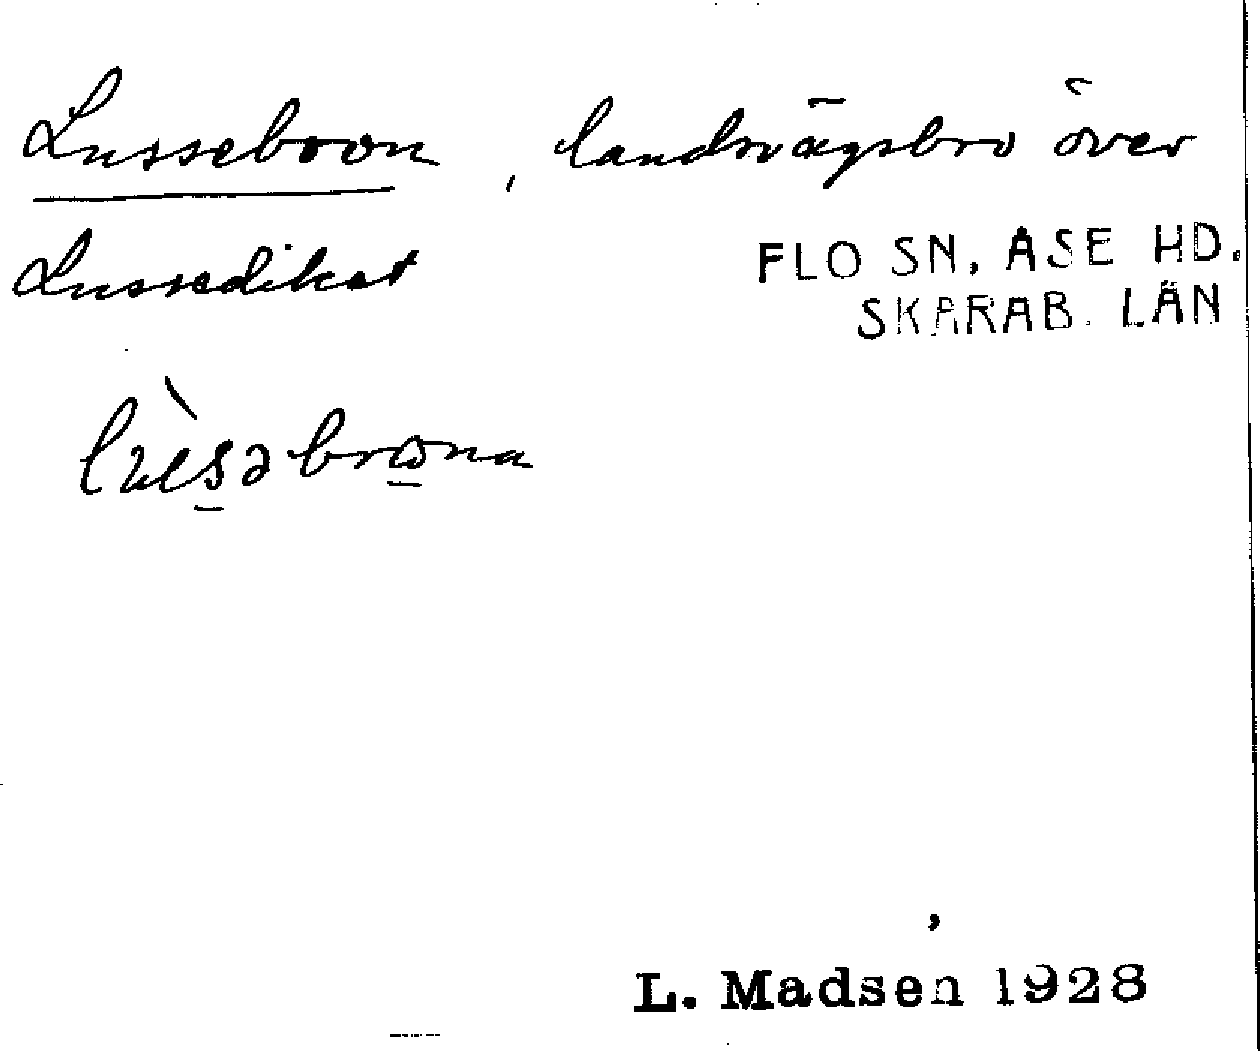 Lussebron, landsvägsbro över
Lussediket
FLO SN, ASE HD.
SKARAB. LÄN
L. Madsen 1928